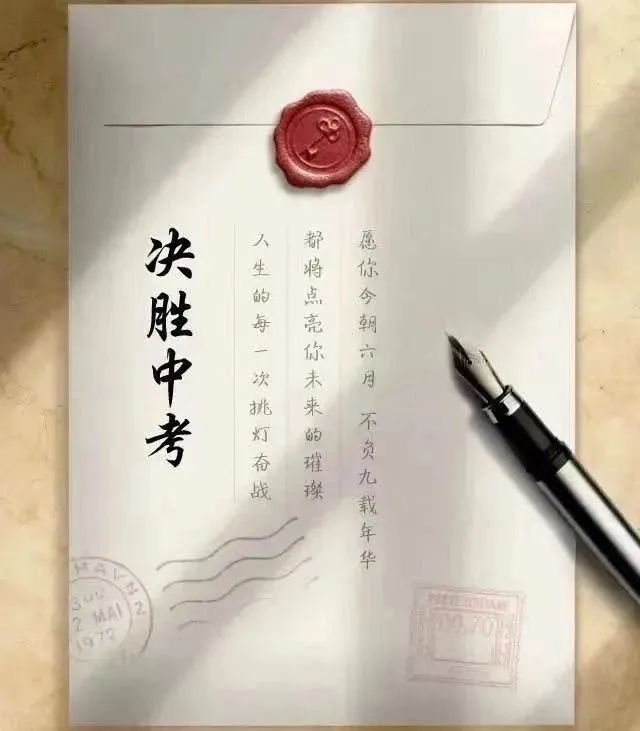 决胜中考
人生的每一次挑灯奋战
都将点亮你未来的璀璨
愿你今朝六月 不负九载年华
HAVN 2
2 MAI